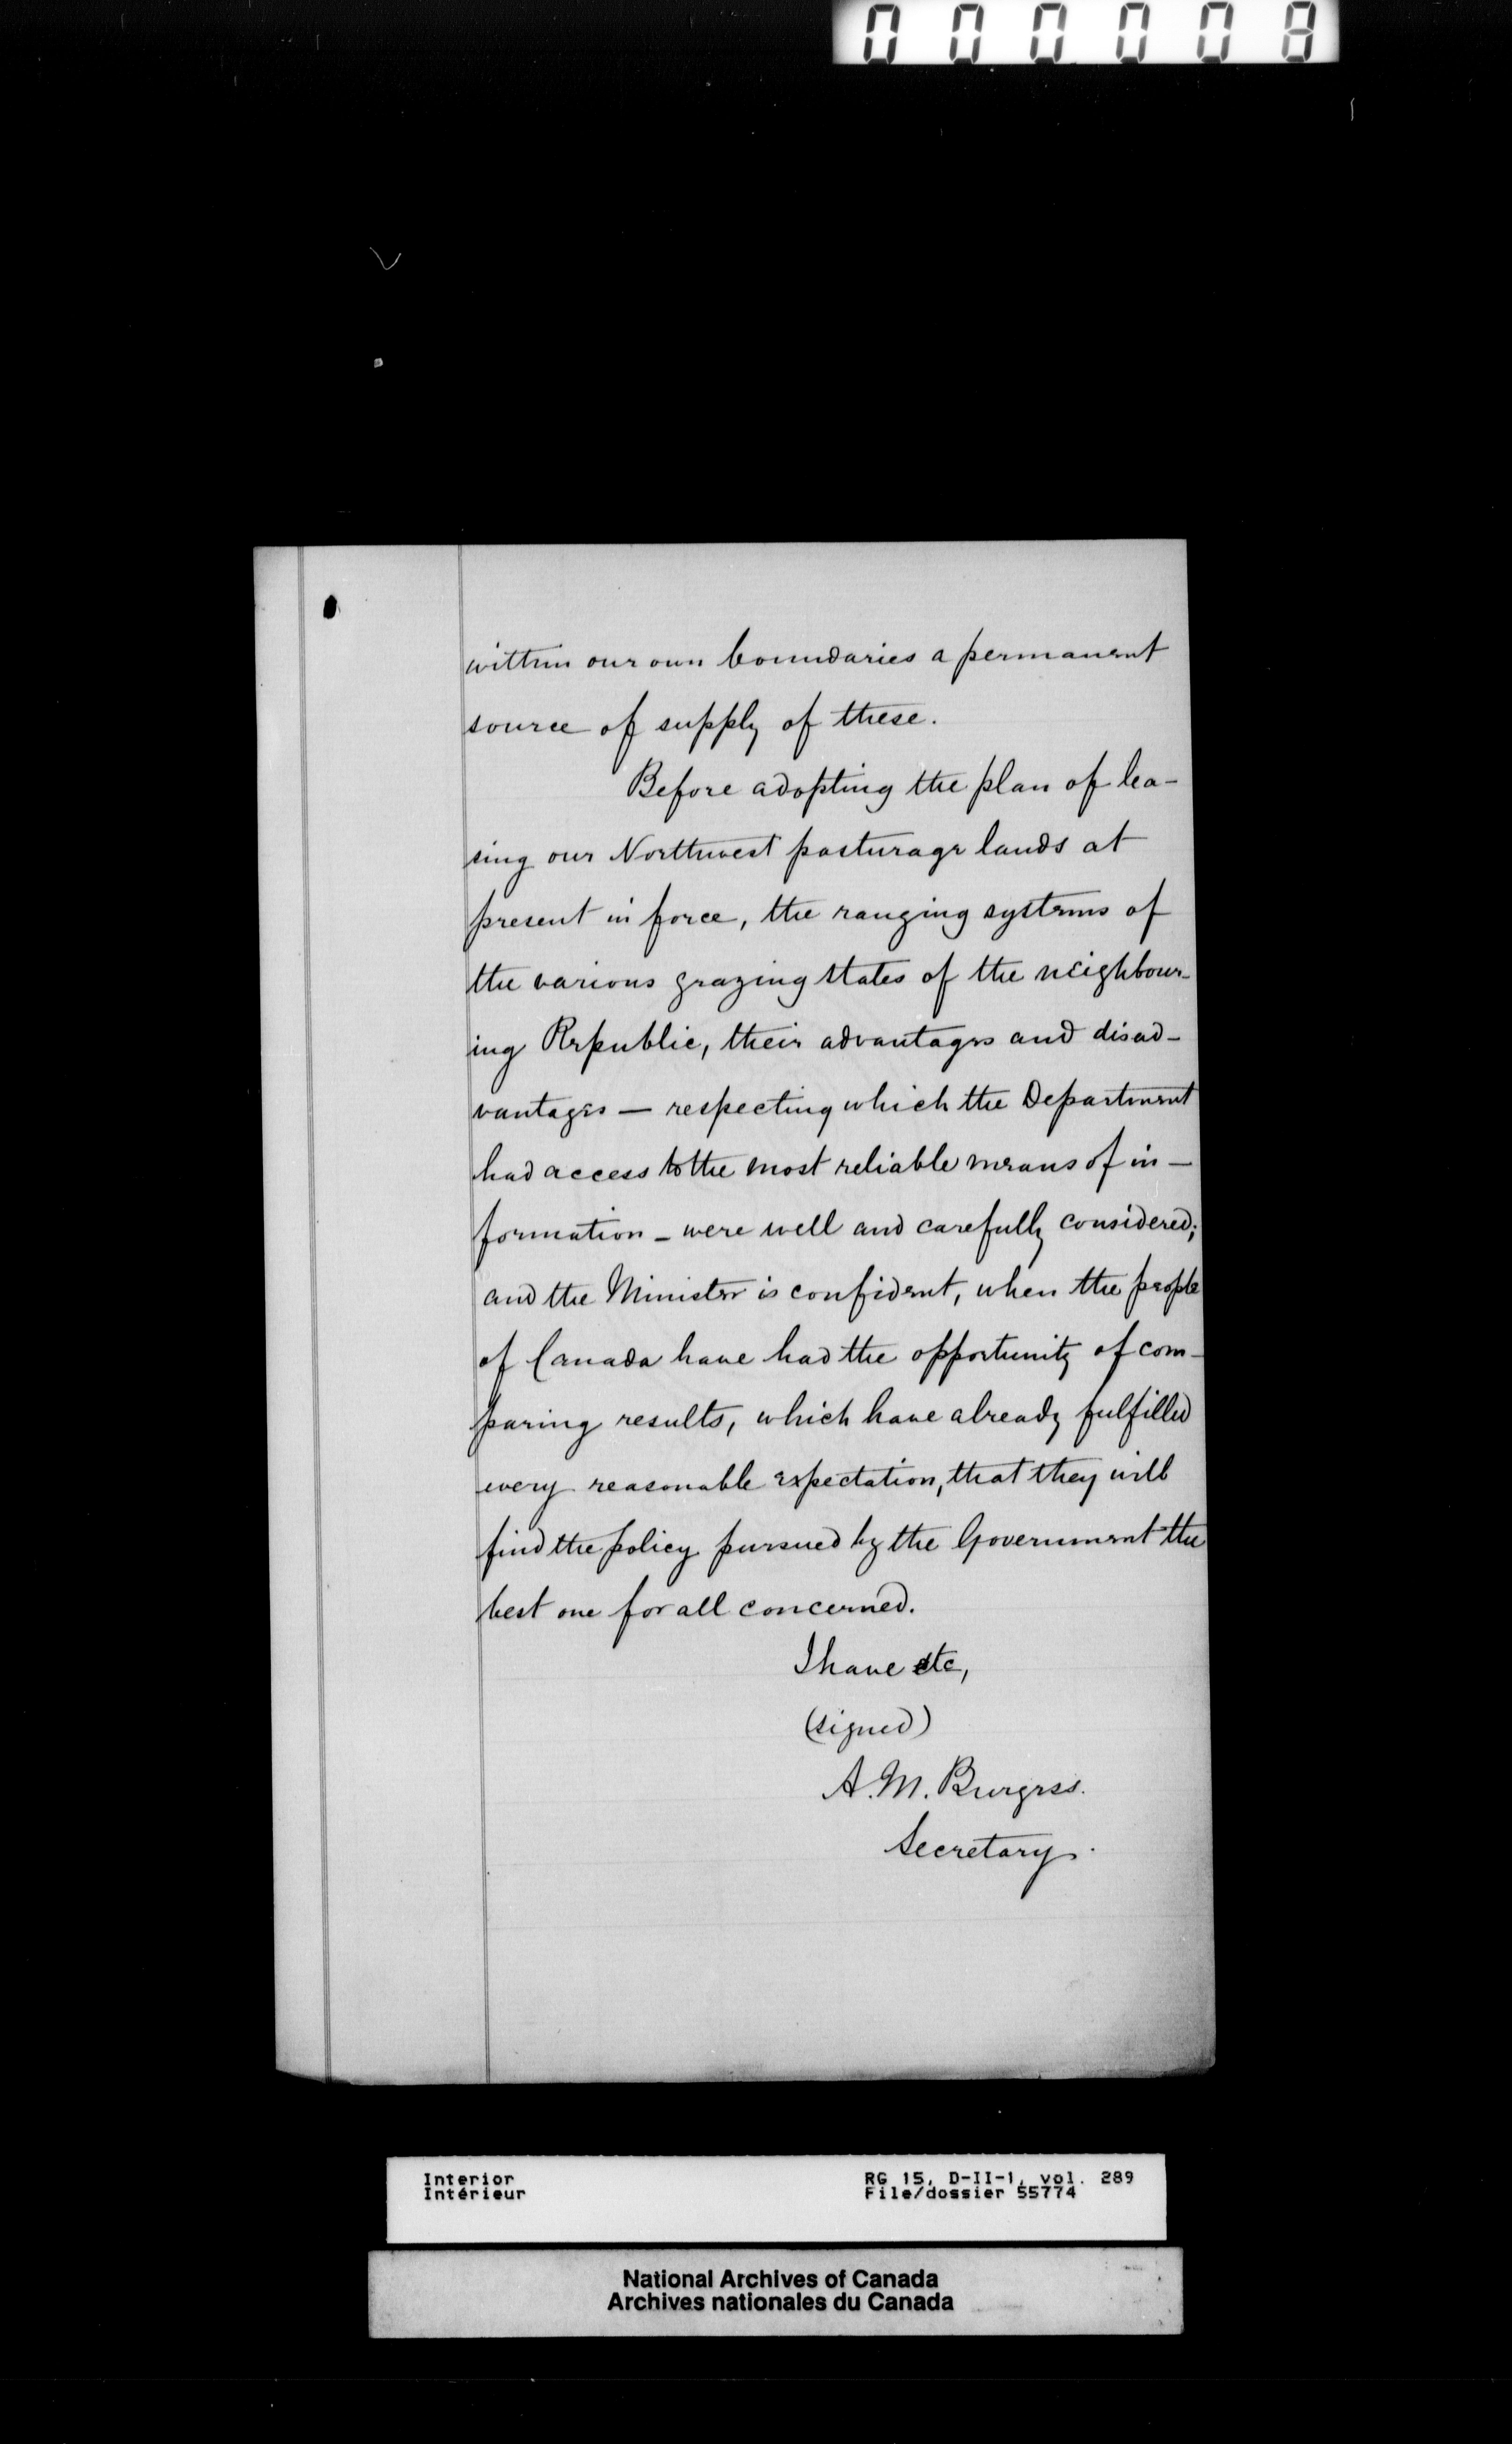 000008
within our own boundaries a permanent
source of supply of these.
Before adopting the plan of lea-
sing our Northwest pasturage lands at
present in force, the ranging systems of
the various grazing states of the neighbour-
ing Republic, their advantages and disad-
vantages — respecting which the Department
had access to the most reliable means of in-
formation — were well and carefully considered;
and the Minister is confident, when the people
of Canada have had the opportunity of com-
paring results, which have already fulfilled
every reasonable expectation, that they will
find the policy pursued by the Government the
best one for all concerned.
I have etc,
(signed)
A. M. Burgess.
Secretary.
Interior RG 15, D-II-1, vol. 289
Intérieur File/dossier 55774
National Archives of Canada
Archives nationales du Canada